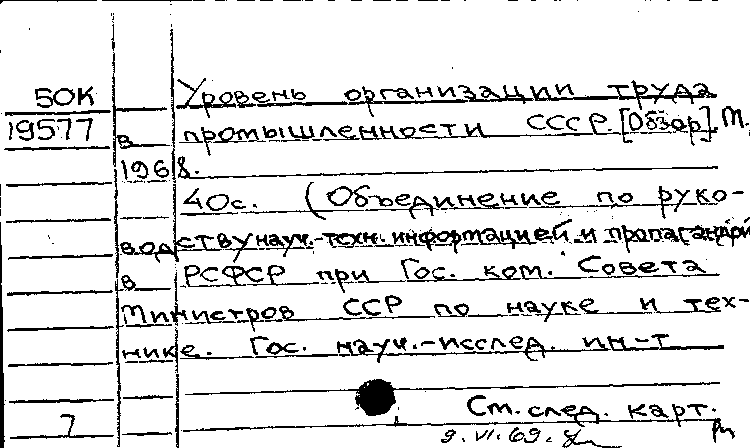 50К Уровень организации труда
19577 в промышленности СССР. [Обзор]. М.
1968.
40с. (Объединение по руко-
водству науч.-техн. информацией и пропагандой
в РСФСР при Гос. ком. Совета
Министров ССР по науке и тех-
нике. Гос. науч.-исслед. ин-т
См. след. карт.
7 9.VI.69.